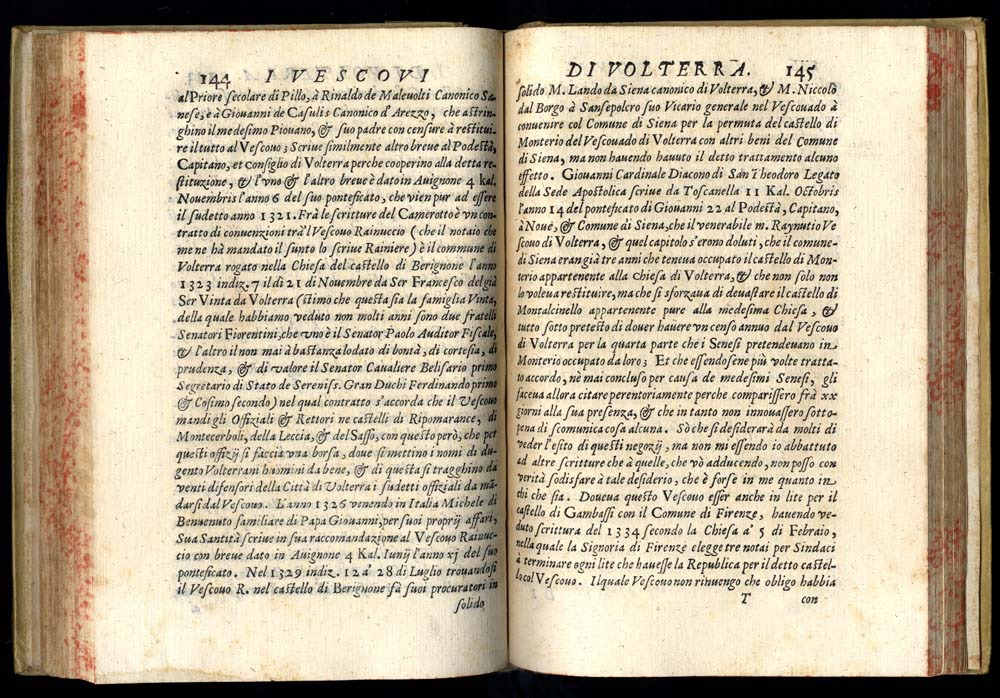 144 I VESCOVI
al Priore secolare di Pillo, à Rinaldo de Malevolti Canonico Sa-
nese, e à Giovanni de Casulis Canonico d'Arezzo, che astrin-
ghino il medesimo Piovano, & suo padre con censure à restitui-
re il tutto al Vescovo; Scrive similmente altro breve al Podestà,
Capitano, et consiglio di Volterra perche cooperino alla detta re-
stituzione, & l'vno & l'altro breve è dato in Avignone 4 kal.
Novembris l'anno 6 del suo ponteficato, che vien pur ad essere
il sudetto anno 1321. Frà le scritture del Camerotto è vn con-
tratto di convenzioni trà l Vescovo Rainuccio (che il notaio che
me ne hà mandato il sunto lo scrive Rainiere) è il commune di
Volterra rogato nella Chiesa del castello di Berignone l'anno
1323 indiz. 7 il dì 21 di Novembre da Ser Francesco del già
Ser Vinta da Volterra (stimo che questa sia la famiglia Vinta,
della quale habbiamo veduto non molti anni sono due fratelli
Senatori Fiorentini, che vno è il Senator Paolo Auditor Fiscale,
& l'altro il non mai à bastanza lodato di bontà, di cortesia, di
prudenza, & di valore il Senator Cavaliere Belisario primo
Segretario di Stato de Sereniss. Gran Duchi Ferdinando primo
& Cosimo secondo) nel qual contratto s'accorda che il Vescovo
mandi gli Offiziali & Rettori ne castelli di Ripomarance, di
Montecerboli, della Leccia, & del Sasso, con questo però, che per
questi offizij si faccia vna borsa, dove si mettino i nomi di du-
gento Volterrani huomini da bene, & di questa si tragghino da
venti difensori della Città di Volterra i sudetti offiziali da mã-
darsi dal Vescovo. L'anno 1326 venendo in Italia Michele di
Benvenuto familiare di Papa Giovanni, per suoi proprij affari,
Sua Santità scrive in sua raccomandazione al Vescovo Rainuc-
cio con breve dato in Avignone 4 Kal. Iunij l'anno xj del suo
ponteficato. Nel 1329 indiz. 12 a' 28 di Luglio trovandosi
il Vescovo R. nel castello di Berignone fà suoi procuratori in
solido
DI VOLTERRA. 145
solido M. Lando da Siena canonico di Volterra, & M. Niccolò
dal Borgo à Sansepolcro suo Vicario generale nel Vescovado à
convenire col Comune di Siena per la permuta del castello di
Monterio del Vescovado di Volterra con altri beni del Comune
di Siena, ma non havendo havuto il detto trattamento alcuno
effetto. Giovanni Cardinale Diacono di San Theodoro Legato
della Sede Apostolica scrive da Toscanella 11 Kal. Octobris
l'anno 14 del ponteficato di Giovanni 22 al Podestà, Capitano,
à Nove, & Comune di Siena, che il venerabile m. Raynutio Ve
scovo di Volterra, & quel capitolo s'erono doluti, che il comune-
di Siena eran già tre anni che teneva occupato il castello di Mon-
terio appartenente alla Chiesa di Volterra, & che non solo non
lo voleva restituire, ma che si sforzava di devastare il castello di
Montalcinello appartenente pure alla medesima Chiesa, &
tutto sotto pretesto di dover havere vn censo annuo dal Vescovo
di Volterra per la quarta parte che i Senesi pretendevano in
Monterio occupato da loro; Et che essendosene più volte tratta-
to accordo, ne mai concluso per causa de medesimi Senesi, gli
faceva allora citare perentoriamente perche comparissero frà xx
giorni alla sua presenza, & che in tanto non innovassero sotto-
pena di scomunica cosa alcuna. Sò che si desiderarà da molti di
veder l'esito di questi negozij, ma non mi essendo io abbattuto
ad altre scritture che à quelle, che vò adducendo, non posso con
verità sodisfare à tale desiderio, che è forse in me quanto in
chi che sia. Doveva questo Vescovo esser anche in lite per il
castello di Gambassi con il Comune di Firenze, havendo ve-
duto scrittura del 1334 secondo la Chiesa a' 5 di Febraio,
nella quale la Signoria di Firenze elegge tre notai per Sindaci
à terminare ogni lite che havesse la Republica per il detto castel-
lo col Vescovo. Il quale Vescovo non rinvengo che obligo habbia
T con